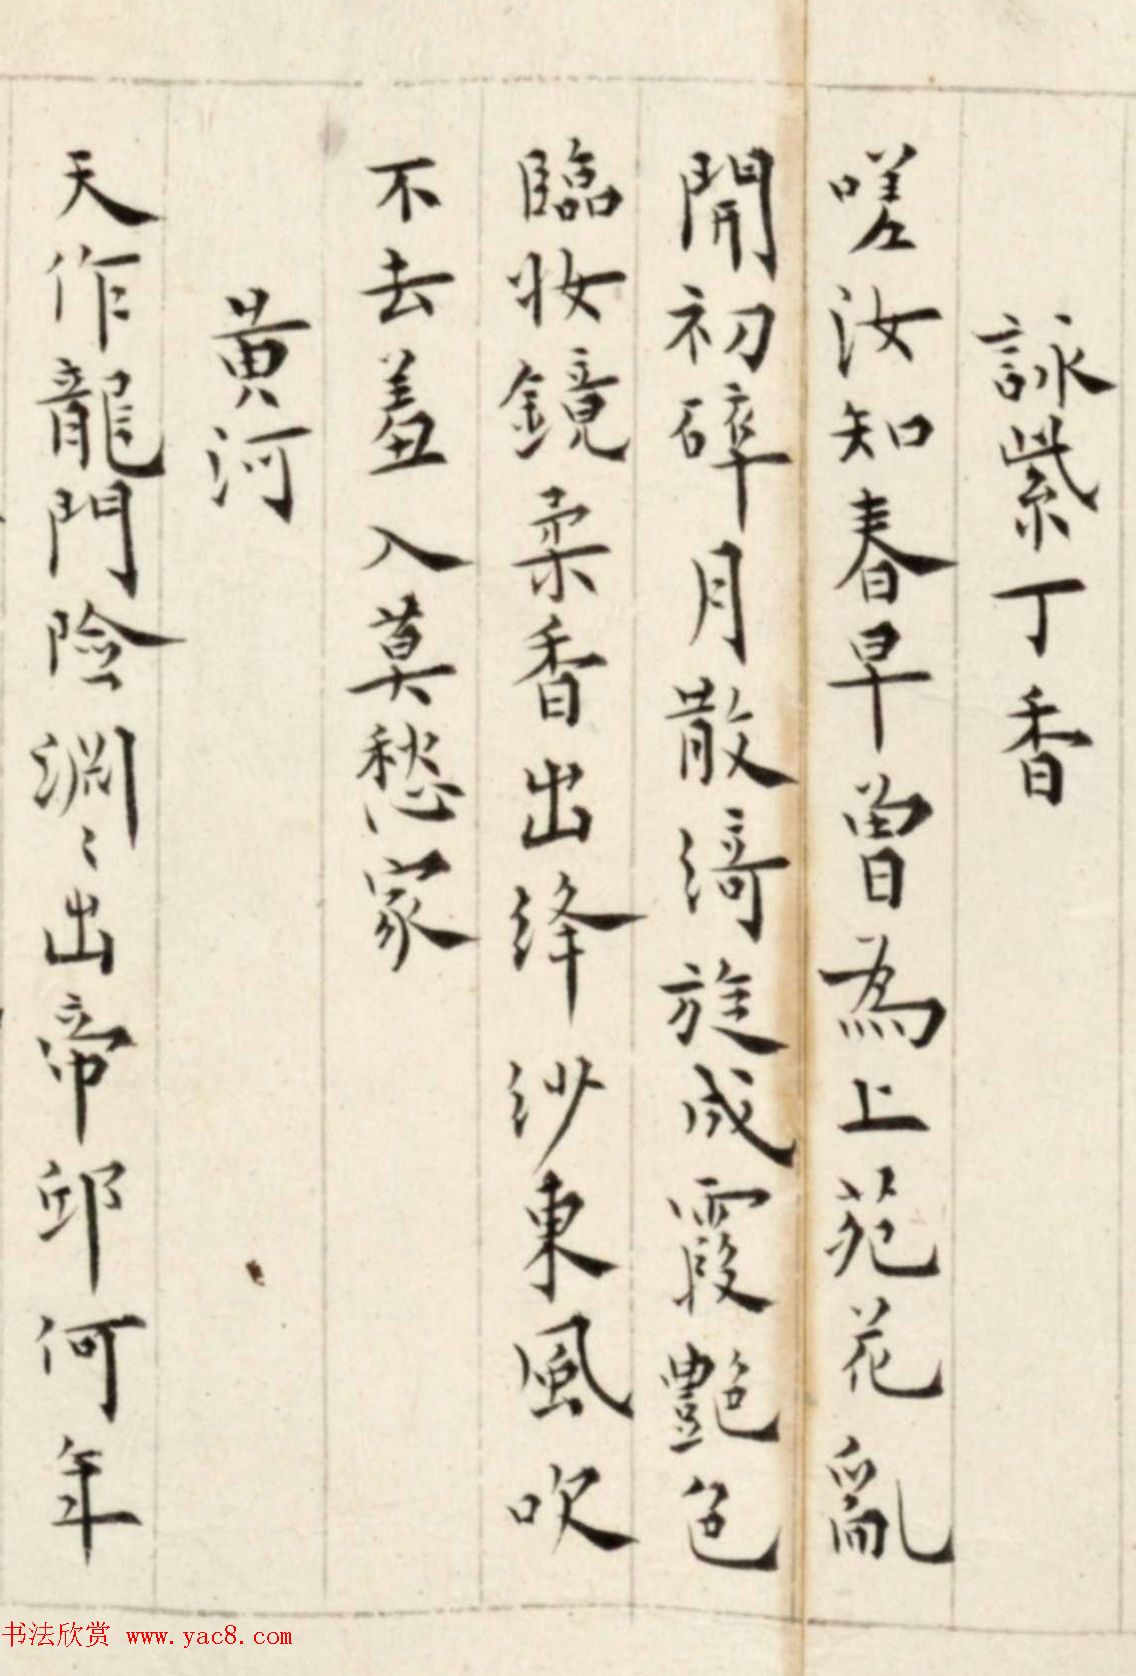 詠紫丁香
嗟汝知春早曾為上苑花亂
開初碎月散綺旋成霞艷色
臨妝鏡柔香出絳沙東風吹
不去羞入莫愁家
黄河
天作龍門險淵〻出帝邱何年
书法欣赏 www.yac8.com